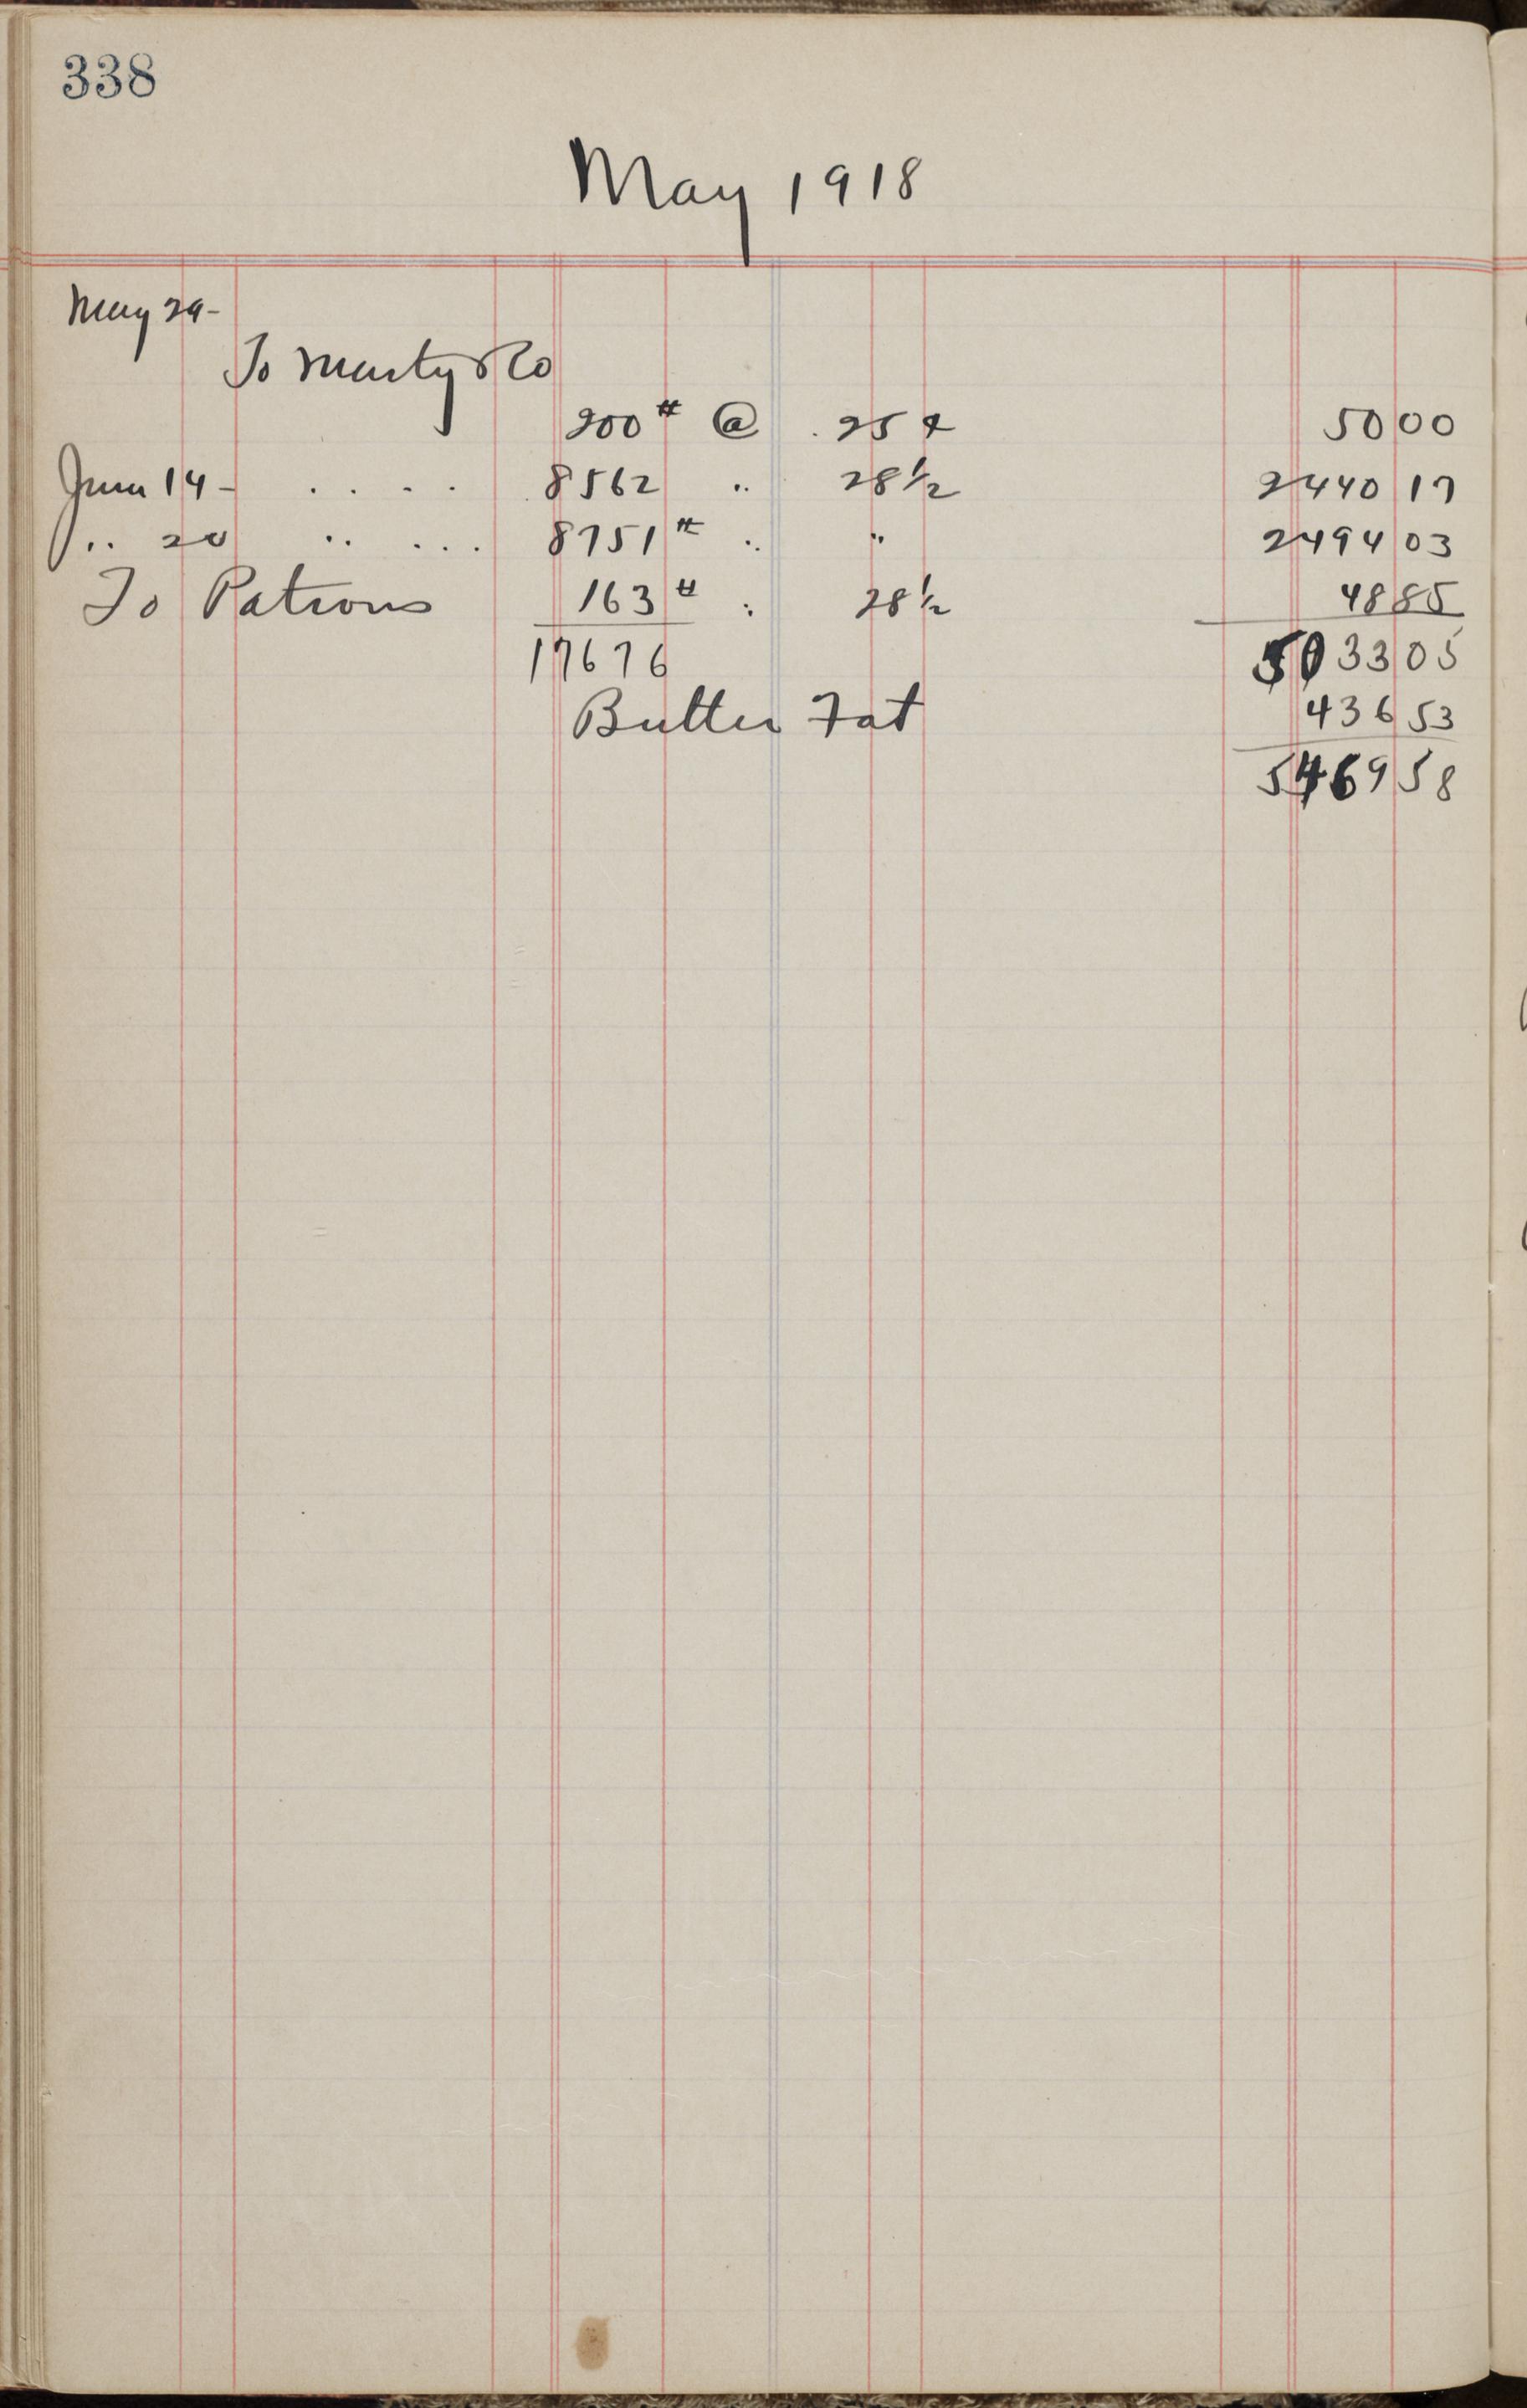 338
May 1918
May 29-
To Marty & Co
200 # @ 25 ¢ 5000
June 14- . . . . 8562 " 28 1/2 2440 17
" 20 " . . . 8751 # " " 2494 03
To Patrons 163 # " 28 1/2 4885
17676 5033 05
Butter Fat 436 53
5469 58